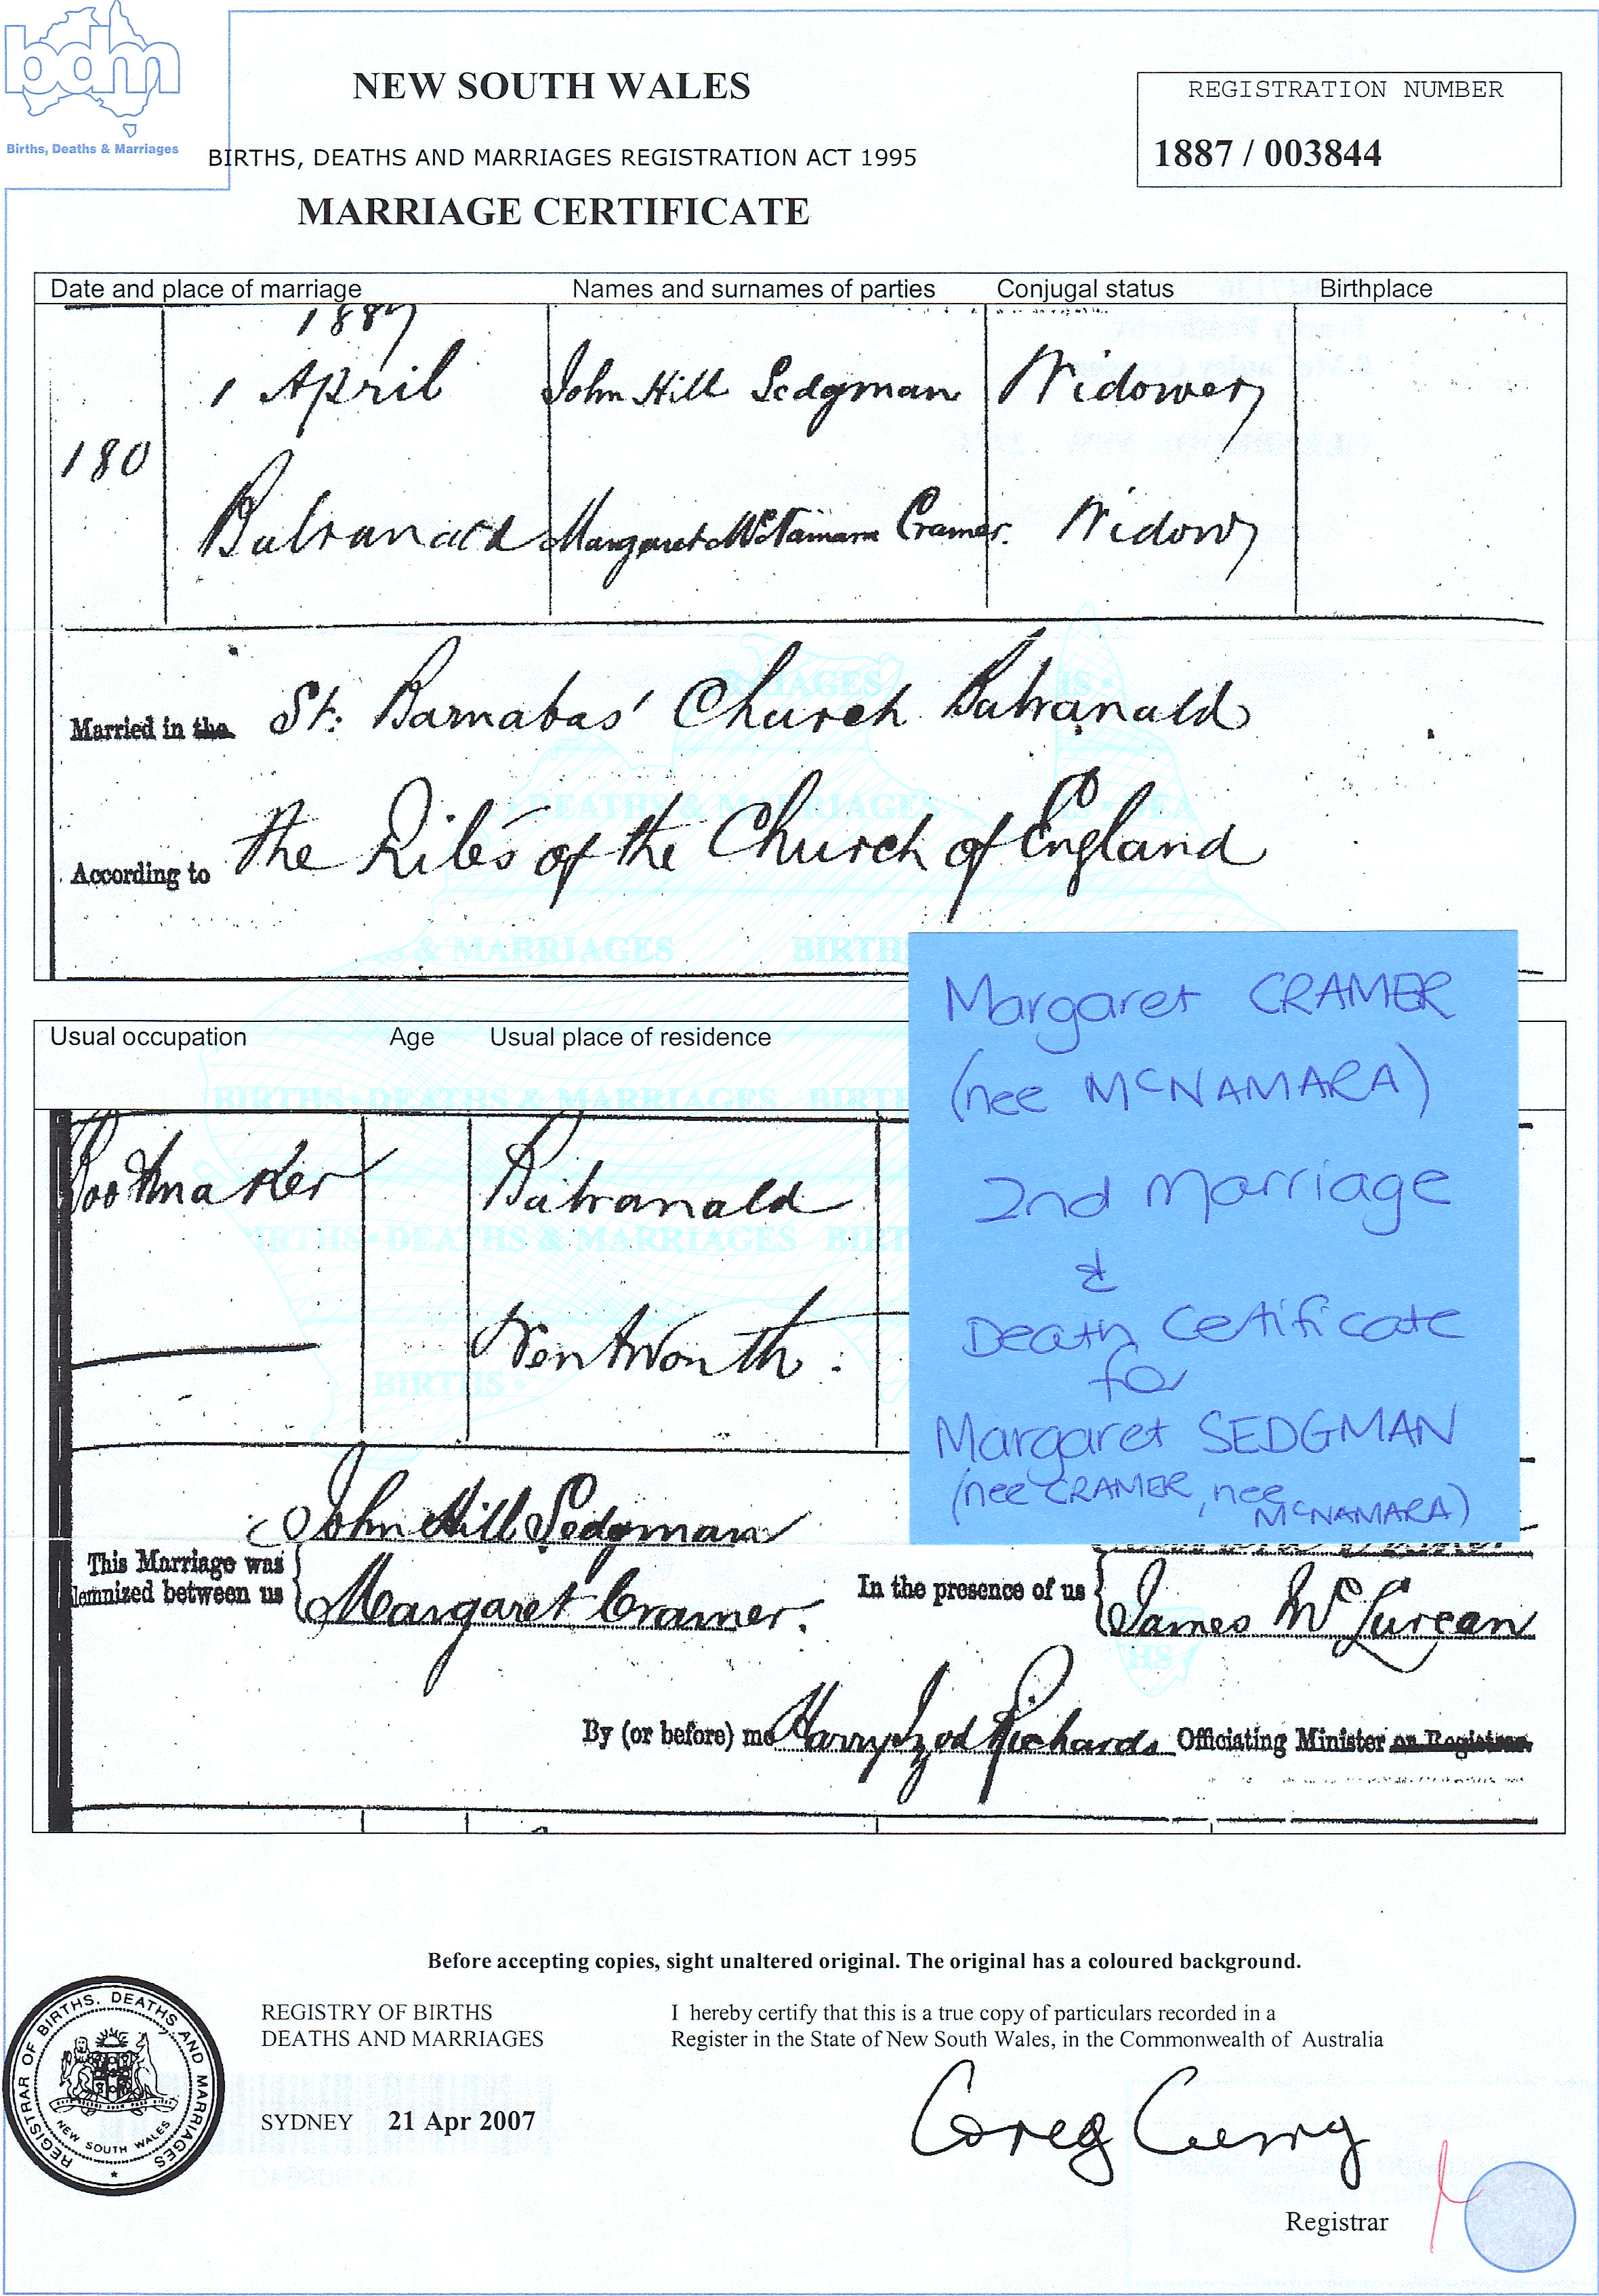 bdm
Births, Deaths & Marriages
NEW SOUTH WALES
BIRTHS, DEATHS AND MARRIAGES REGISTRATION ACT 1995
MARRIAGE CERTIFICATE
REGISTRATION NUMBER
1887 / 003844
Date and place of marriage Names and surnames of parties Conjugal status Birthplace
1887
1 April John Hill Sedgman Widower
180
Balranald Margaret McNamara Cramer. Widow
Married in the St. Barnabas' Church Balranald
According to the Rites of the Church of England
Usual occupation Age Usual place of residence
Bootmaker Balranald
Wentworth
Margaret CRAMER
(nee McNAMARA)
2nd Marriage
&
Death Certificate
for
Margaret SEDGMAN
(nee CRAMER, nee
McNAMARA)
John Hill Sedgman
This Marriage was
lemnized between us
Margaret Cramer.
In the presence of us
James McLurcan
By (or before) me Harry Izod Richards Officiating Minister or Registrar
Before accepting copies, sight unaltered original. The original has a coloured background.
REGISTRY OF BIRTHS
DEATHS AND MARRIAGES
I hereby certify that this is a true copy of particulars recorded in a
Register in the State of New South Wales, in the Commonwealth of Australia
SYDNEY 21 Apr 2007
Greg Curry
Registrar
REGISTRAR OF BIRTHS, DEATHS AND MARRIAGES
NEW SOUTH WALES